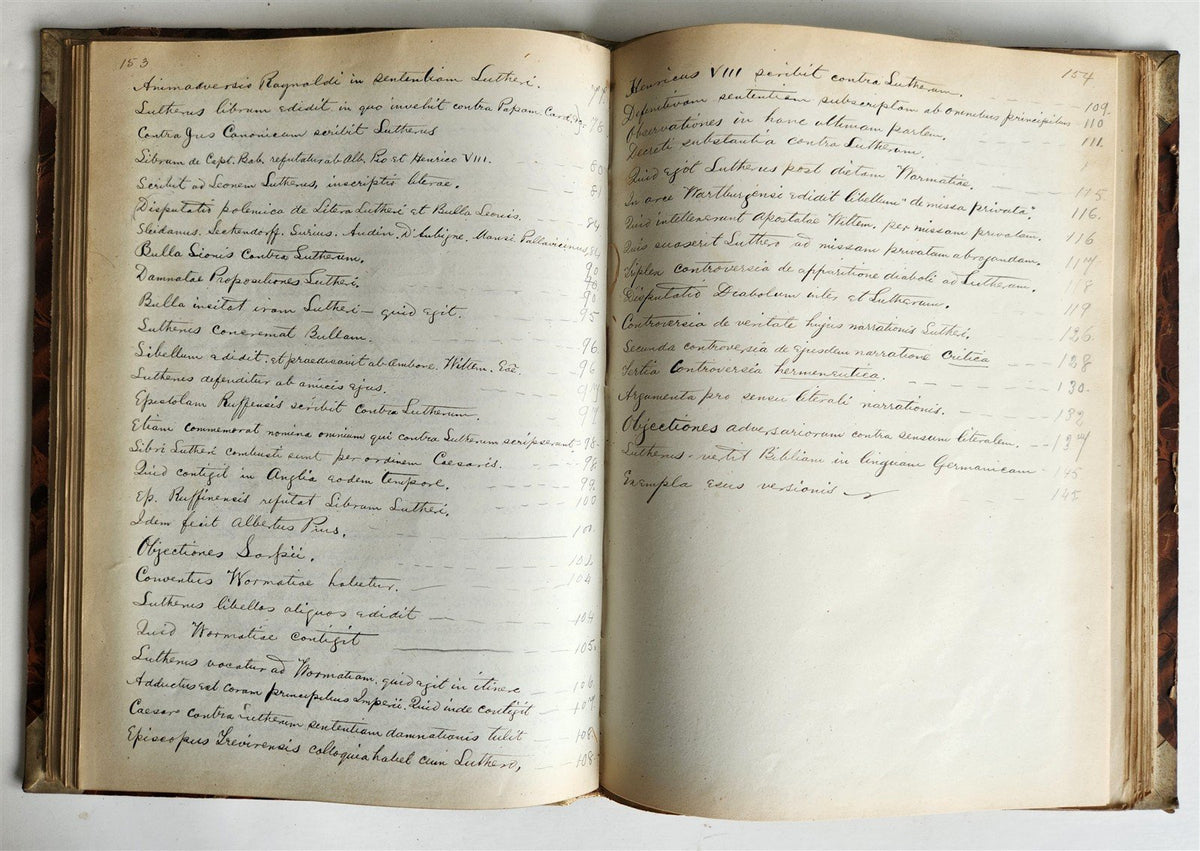 153
Animadversio Raynaldi in sententiam Lutheri.
Lutherus librum edidit, in quo invehit contra Papam, Card, 78
Contra Jus Canonicum scribit Lutherus
Librum de Capt. Bab. refutatur ab Alb. Pio et Henrico VIII. 80
Scribit ad Leonem Lutherus, inscriptis literae. 81
Disputatio polemica de Litera Lutheri et Bulla Leonis. 84
Sleidanus, Seckendorf, Surius, Audin, D'Aubigne, Mansi, Pallavicinus, 84
Bulla Lionis Contra Lutherum. 90
Damnatae Propositiones Lutheri. 90
Bulla incitat iram Lutheri - quid egit. 95
Lutherus concremat Bullam. 96
Libellum edidit, et praedicavit ab Ambone. Wittem. Ecc. 96
Lutherus defenditur ab amicis ejus. 97
Epistolam Ruffensis scribit contra Lutherum. 97
Etiam commemorat nomina omnium qui contra Lutherum scripserunt 98
Libri Lutheri combusti sunt per ordinem Caesaris. 98
Quid contigit in Anglia eodem tempore. 99
Ep. Ruffinensis refutat Librum Lutheri. 100
Idem fecit Albertus Pius. 101
Objectiones Sarpii. 102
Conventus Wormatiae habetur. 104
Lutherus libellos aliquos edidit 104
Quid Wormatiae contigit 105.
Lutherus vocatur ad Wormatiam, quid egit in itinere 106
Adductus est coram principibus Imperii. Quid inde contigit 107
Caesar contra Lutherum sententiam damnationis tulit 108
Episcopus Trevirensis colloquia habet cum Luthero, 108
154
Henricus VIII scribit contra Lutherum. 109
Definitivam sententiam subscriptam ab omnibus principibus 110
Observationes in hanc ultimam partem. 111
Decreti substantia contra Lutherum.
Quid egit Lutherus post dietam Wormatiae. 115
In arce Wartburgensi edidit libellum "de missa privata". 116.
Quid intellexerunt Apostatae Wittem. per missam privatem. 116
Quis suaserit Luthero ad missam privatam abrogandam. 117
Triplex controversia de apparitione diaboli ad Lutherum. 118
Disputatio Diabolum inter et Lutherum. 119
Controversia de veritate hujus narrationis Lutheri. 126
Secunda controversia de ejusdem narratione Critica 128
Tertia Controversia hermeneutica. 130
Argumenta pro sensu literali narrationis. 132
Objectiones adversariorum contra sensum literalem. 137
Lutherus vertit Bibliam in linguam Germanicam 145
Exempla ejus versionis 145